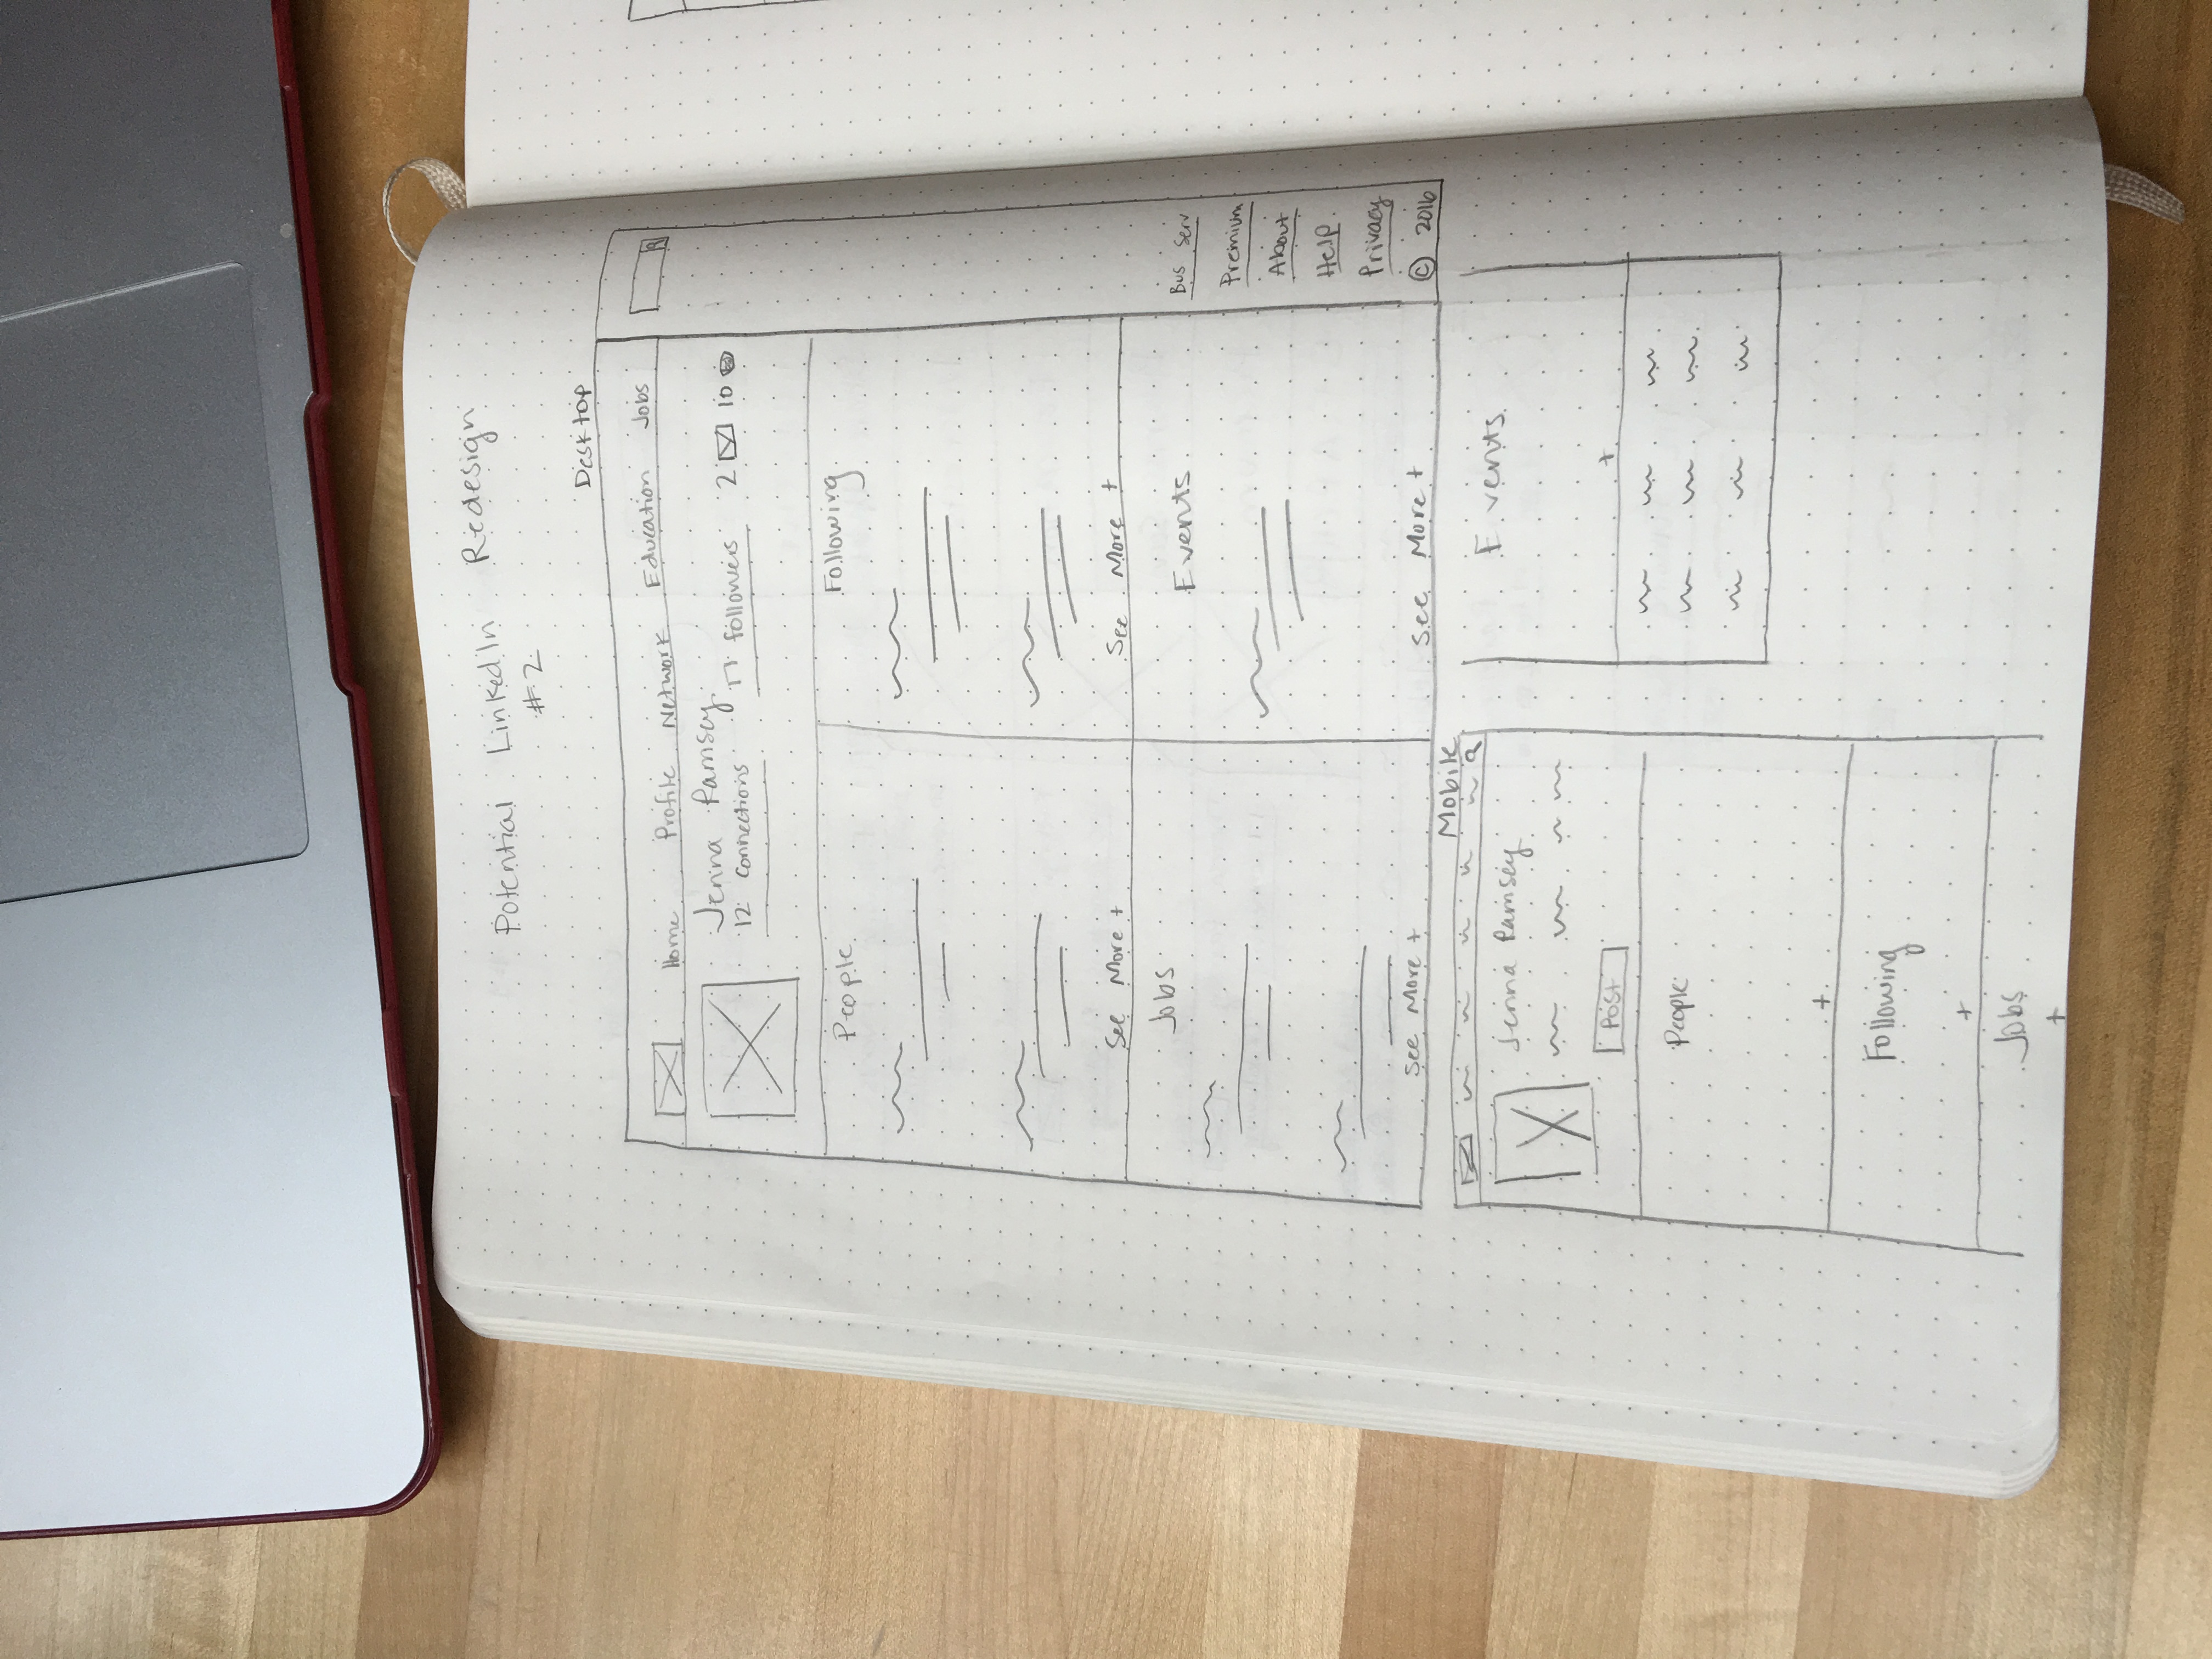 Potential LinkedIn Redesign
#2
Desktop
Home Profile Network Education Jobs
Jenna Ramsey
12 connections followers 2 10
People
See More +
Following
See More +
Jobs
See More +
Events
See More +
Bus Serv
Premium
About
Help
Privacy
© 2016
Mobile
Jenna Ramsey
Post
People
+
Following
+
Jobs
+
Events
+